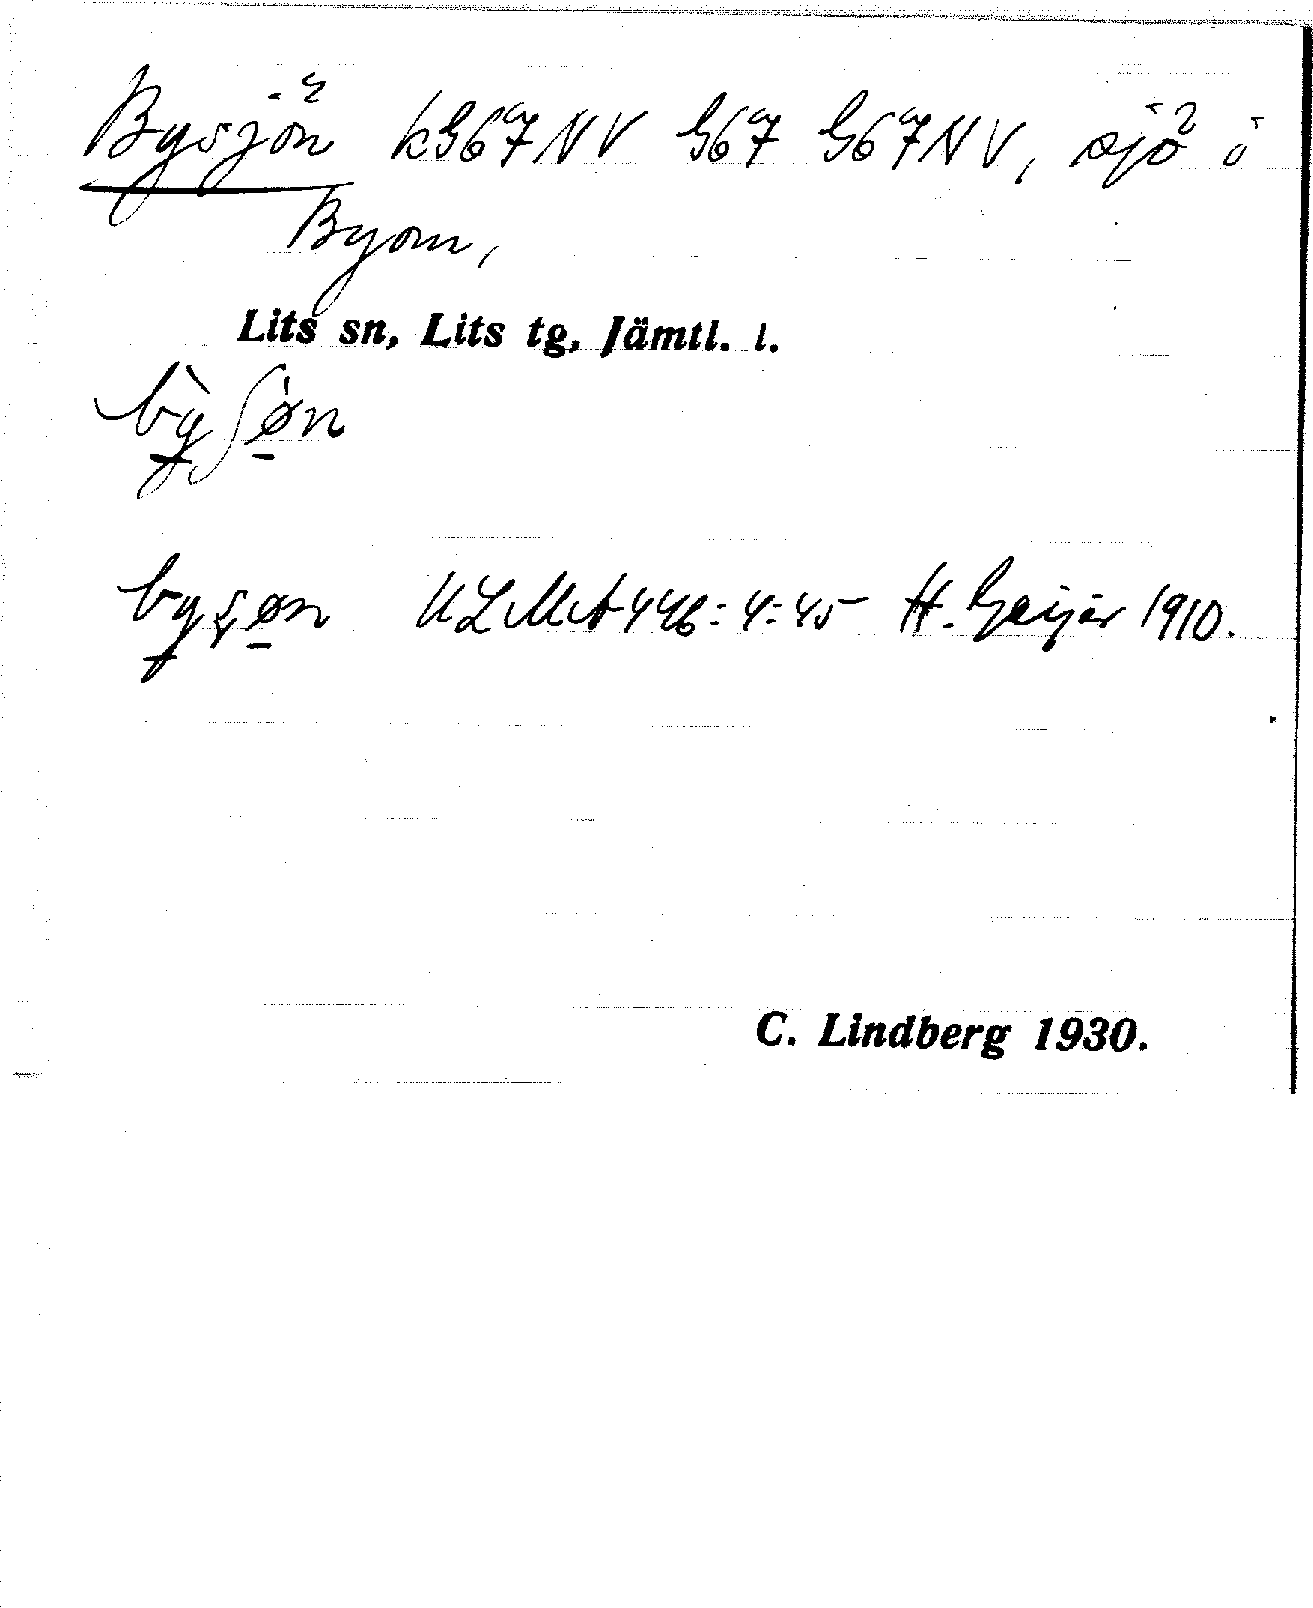 Bysjön kG67NV G67 G67NV, sjö i
Byom,
Lits sn, Lits tg, Jämtl. l.
bỳʃøn
byʂøn ULMA 446:4:45 H. Geijer 1910.
C. Lindberg 1930.